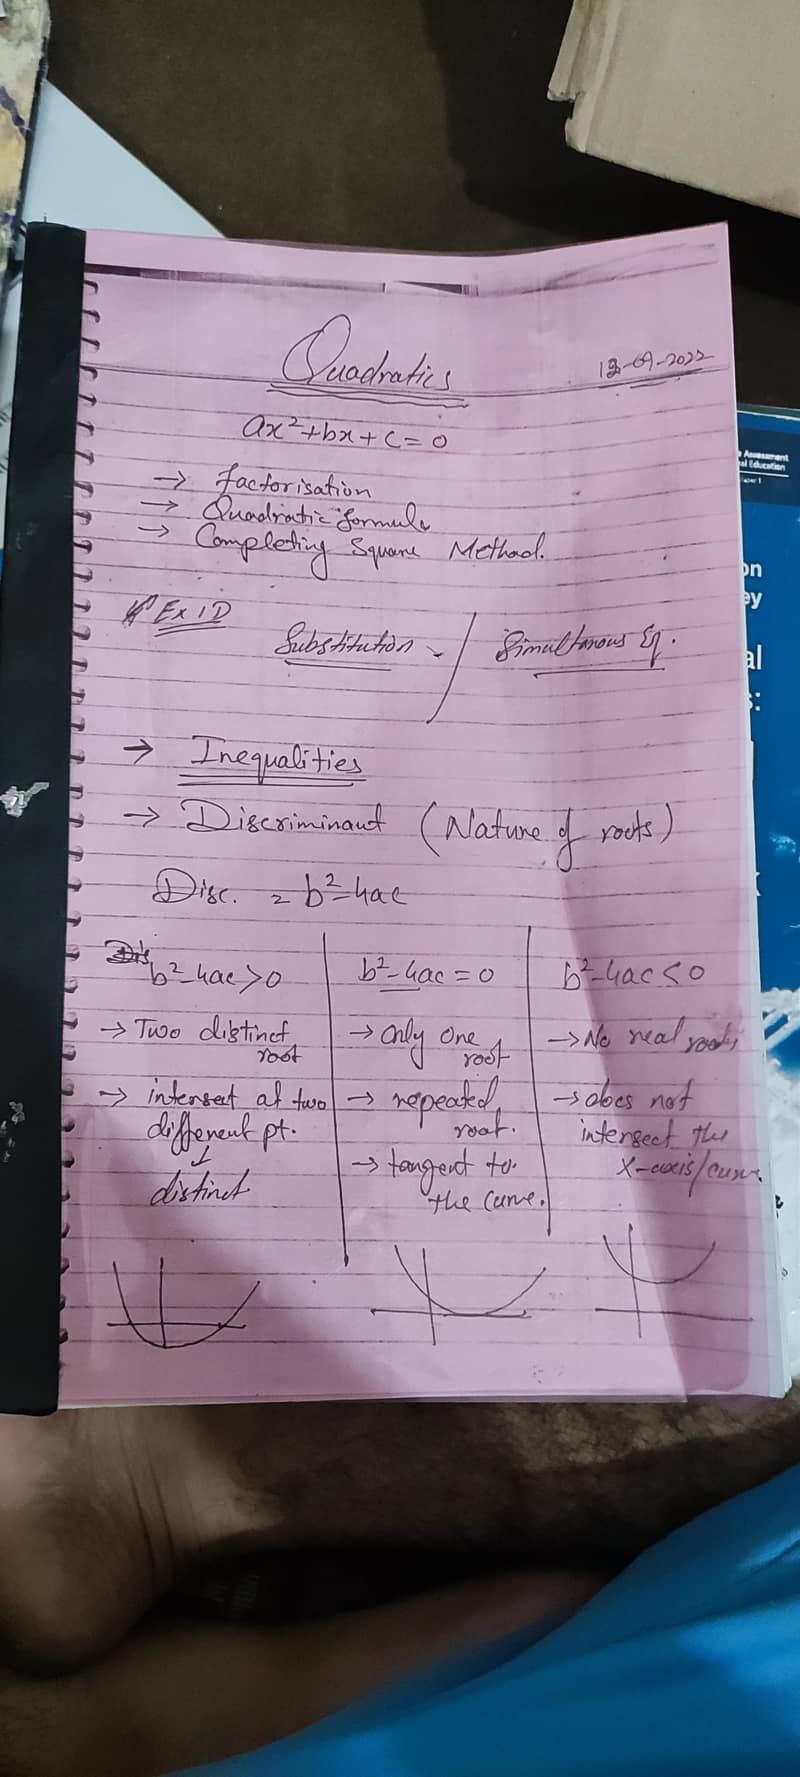 Quadratics
13-09-2022
ax²+bx+c=0
→ factorisation
→ Quadratic formula
→ Completing Square Method.
Ex 1D
Substitution / Simultanous Eq.
→ Inequalities
→ Discriminant (Nature of roots)
Disc. = b²-4ac
b²-4ac>0
→ Two distinct
root
→ intersect at two
different pt.
↓
distinct
b²-4ac = 0
→ only one
root
→ repeated
root.
→ tangent to
the curve.
b²-4ac<0
→ No real roots
→ does not
intersect the
x-axis/curve
Assessment
al Education
on
ey
al
s: